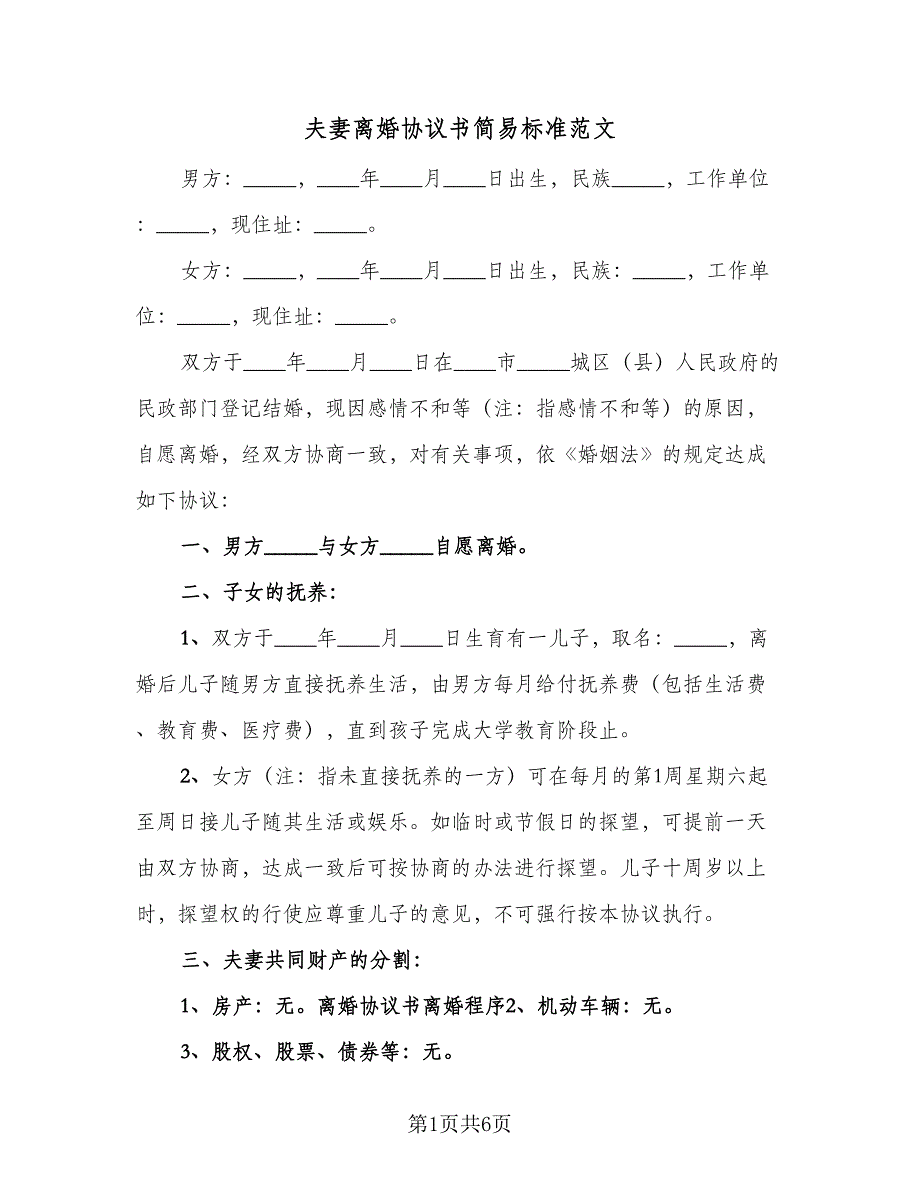 夫妻离婚协议书简易标准范文
男方：_____，____年____月____日出生，民族_____，工作单位
：_____，现住址：_____。
女方：_____，____年____月____日出生，民族：_____，工作单
位：_____，现住址：_____。
双方于____年____月____日在____市_____城区（县）人民政府的
民政部门登记结婚，现因感情不和等（注：指感情不和等）的原因，
自愿离婚，经双方协商一致，对有关事项，依《婚姻法》的规定达成
如下协议：
一、男方_____与女方_____自愿离婚。
二、子女的抚养：
1、双方于____年____月____日生育有一儿子，取名：_____，离
婚后儿子随男方直接抚养生活，由男方每月给付抚养费（包括生活费
、教育费、医疗费），直到孩子完成大学教育阶段止。
2、女方（注：指未直接抚养的一方）可在每月的第1周星期六起
至周日接儿子随其生活或娱乐。如临时或节假日的探望，可提前一天
由双方协商，达成一致后可按协商的办法进行探望。儿子十周岁以上
时，探望权的行使应尊重儿子的意见，不可强行按本协议执行。
三、夫妻共同财产的分割：
1、房产：无。离婚协议书离婚程序2、机动车辆：无。
3、股权、股票、债券等：无。
第1页共6页